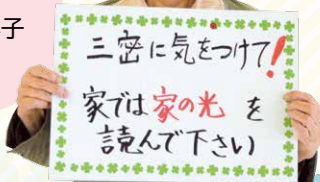 子
三密に気をつけて!
家では家の光を
読んで下さい